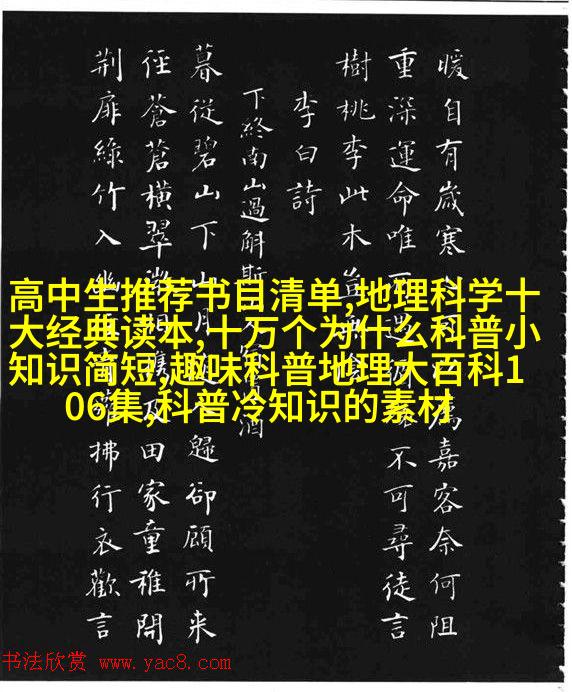 高中生推荐书目清单,地理科学十
大经典读本,十万个为什么科普小
知识简短,趣味科普地理大百科1
06集,科普冷知识的素材
暖自有歲寒嘉客奈何阻
重深運命唯不可尋徒言
樹桃李此木豈
李白詩
下終南山過斛斯酒
暮從碧山下山月歸卻顧所来
徑蒼蒼橫翠及田家童稚開
荆扉綠竹入拂行衣歡言
书法欣赏 www.yac8.com